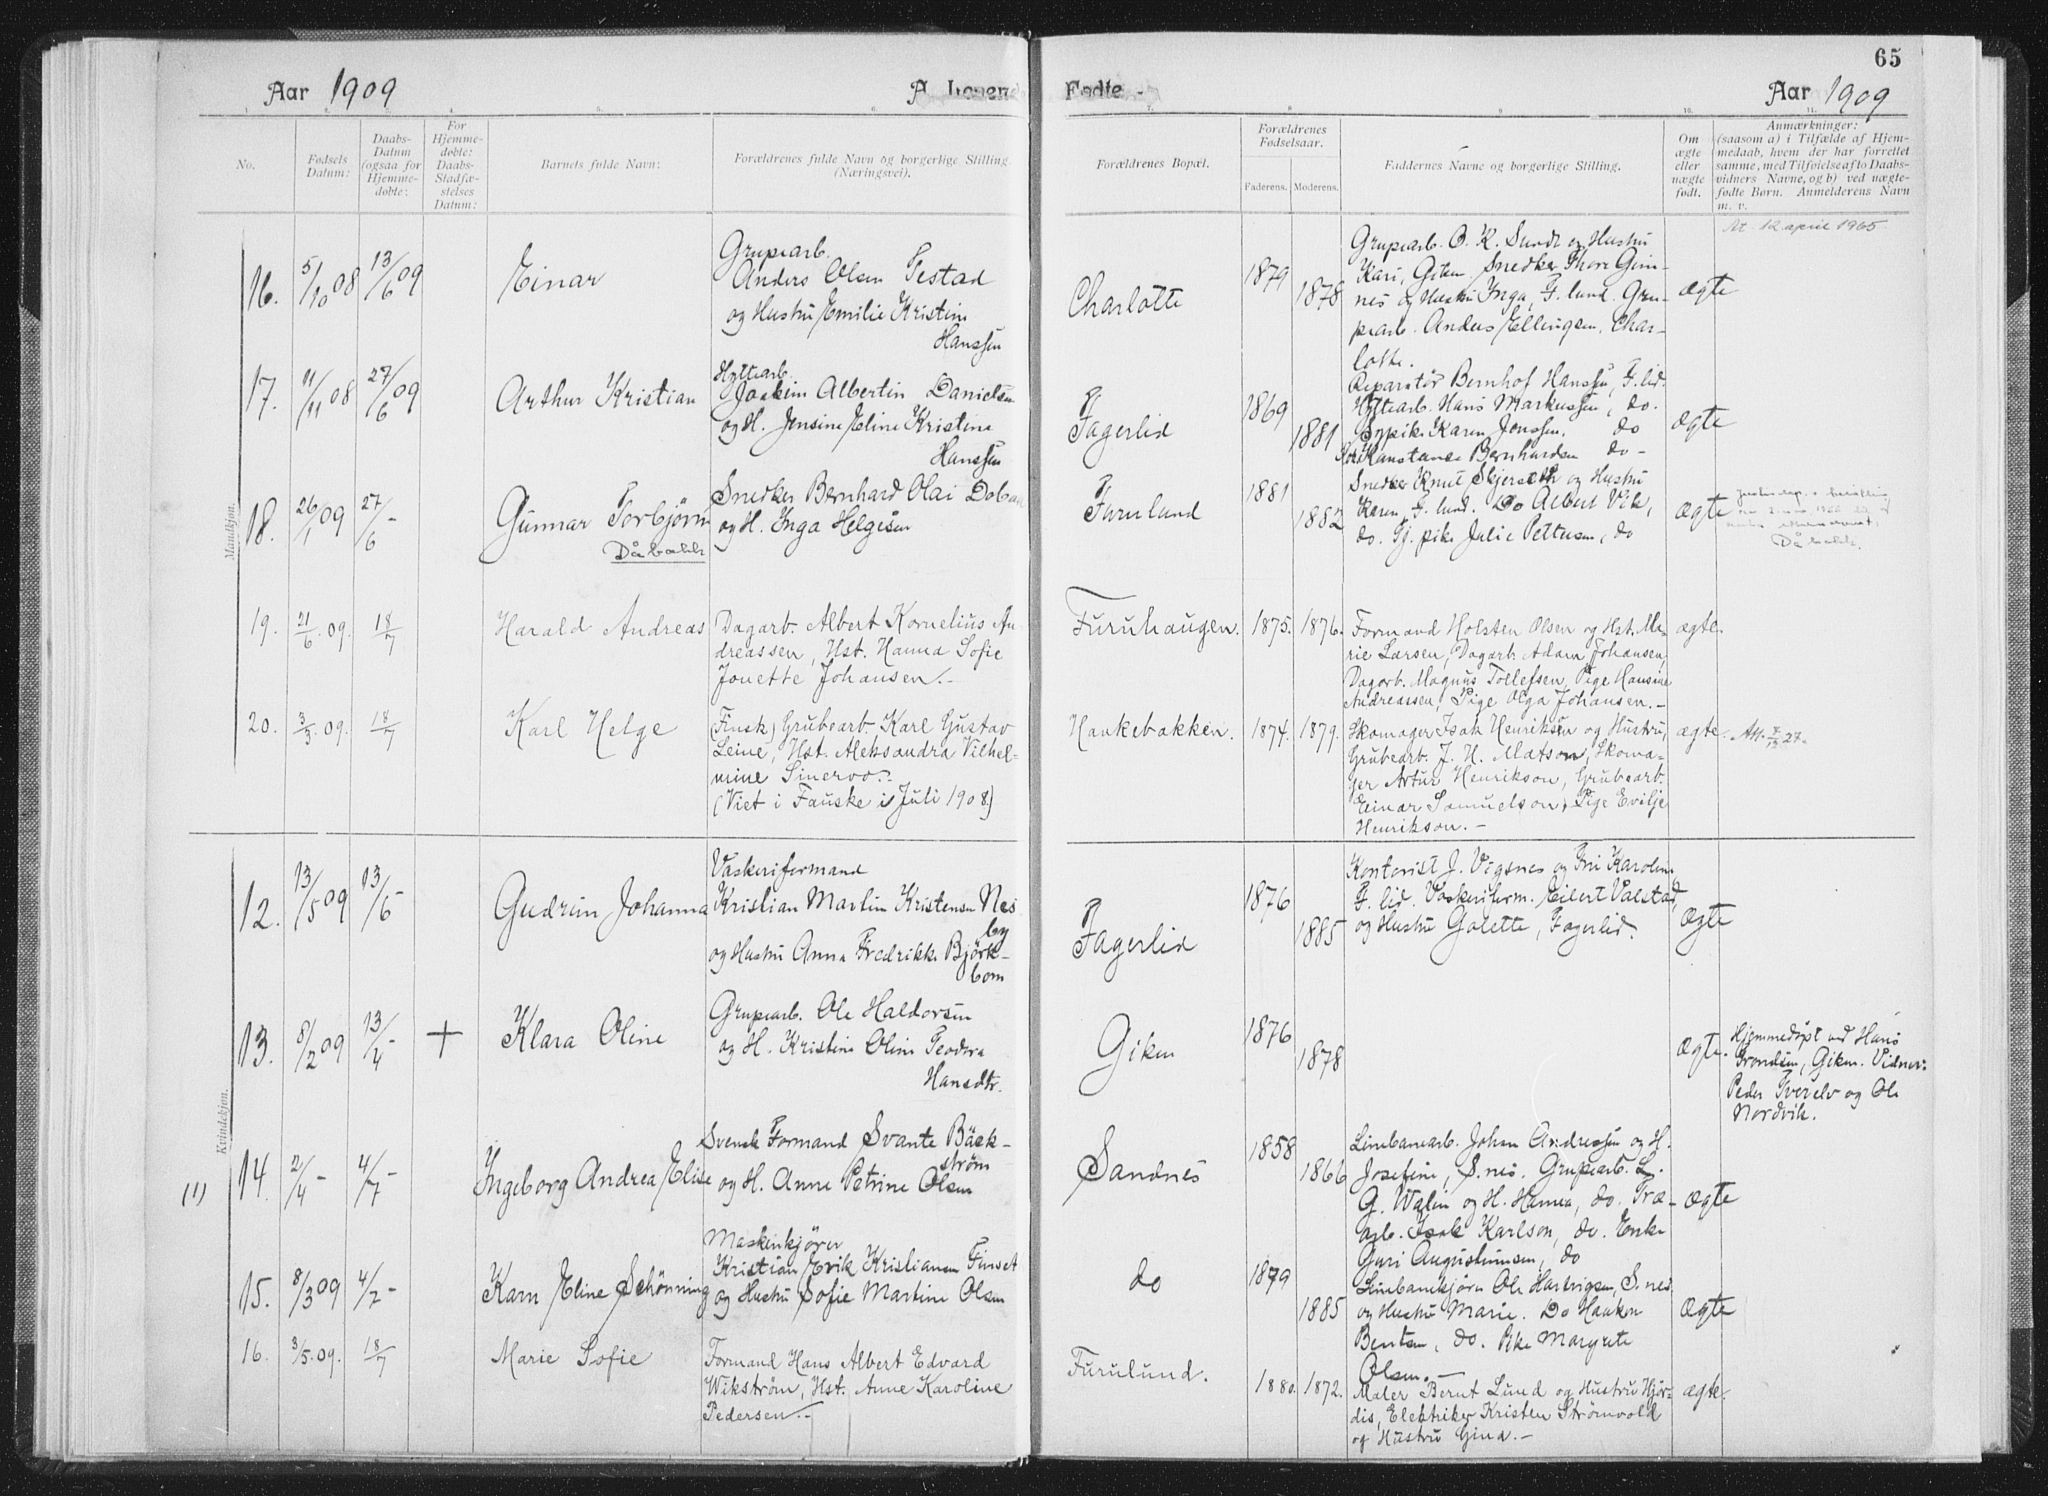 65
Aar 1909
Fødte
Aar 1909
No.
Fødsels Datum:
Daabs-Datum (ogsaa for Hjemme-døbte:
For Hjemme-døbte: Daabs-Stadfæ-stelses Datum:
Barnets fulde Navn:
Forældrenes fulde Navn og borgerlige Stilling.
(Næringsvei).
Forældrenes Bopæl.
Forældrenes Fødselsaar.
Faderens. Moderens.
Faddernes Navne og borgerlige Stilling.
Om ægte eller uægte født.
Anmærkninger:
(saasom a) i Tilfælde af Hjem-
medaab, hvem der har forrettet
samme, med Tilføielse af to Daabs-
vidners Navne, og b) ved uægte-
fødte Børn. Anmelderens Navn
m. v.
Mandkjøn.
16. 5/10 08 13/6 09 Einar
Grupearb.
Anders Olsen Testad
og Hustru Emilie Kristine
Hanssen
Charlotte 1879 1878
Grupearb. O. K. Sundt og Hustru
Kari, Giken. Snedker Thore Gim-
nes og Hustru Inga, F. lund. Gru-
pearb. Anders Ellingsen, Char-
lotte.
Ægte
At 12 april 1965
17. 11/11 08 27/6 09 Arthur Kristian
Hyttearb.
Joakim Albertin Danielsen
og H. Jensine Eline Kristine
Hanssen
Fagerlid 1869 1881
Reparatør Bernhof Hanssen, F. lid.
Hyttearb. Hans Markussen, do.
Sypike Karen Jonssen. do
Konstanse Bernhardsen do-
Ægte
18. 26/1 09 27/6 - Gunnar Torbjørn
Dåbakk
Snedker Bernhard Olai
og H. Inga Helgesen
Furulund 1881 1882
Snedker Knut Skjerseth og Hustru
Karen, F. lund. Do Albert Vik,
do. Tj. pike Julie Pettersen, do
Ægte
Dåbakk.
19. 21/6 . 09. 18/7 Harald Andreas
Dagarb. Albert Kornelius An-
dreassen, Hst. Hanna Sofie
Jonette Johansen.-
Furuhaugen. 1875. 1876.
Formand Holsten Olsen og Hst. Ma-
rie Larsen, Dagarb. Adam Johansen,
Dagarb. Magnus Tollefsen, Pige Hansine
Andreassen, Pige Olga Johansen.-
ægte.
20. 3/3 . 09. 18/7 Karl Helge
(Finsk) Grubearb. Karl Gustav
Leine, Hst. Aleksandra Vilhel-
mine Sinervo.-
(Viet i Fauske i Juli 1908)
Hankebakken. 1874. 1879.
Skomager Isak Henriksen og Hustru,
Grubearb. J. H. Matson, Skoma-
ger Artur Henrikson, Grubearb.
Einar Samuelson, Pige Evilje
Henrikson.-
ægte.
Att. 7/12 27.
Kvindekjøn.
12. 13/5 09 13/6 - Gudrun Johanna
Vaskeriformand
Kristian Martin Kristensen Nes
by
og Hustru Anna Fredrikke Björk-
bom
Fagerlid 1876 1885
Kontorist J. Vigsnes og Fru Karoline
F. lid. Vaskeriform. Eilert Valstad,
og Hustru Golette, Fagerlid.
Ægte
13. 8/2 09 13/4 - + Klara Oline
Grupearb. Ole Haldorsen
og H. Kristine Oline Teodora
Hansdtr.
Giken 1876 1878
Ægte.
Hjemmedøpt ved Hans
Trondsen, Giken. Vidner:
Peder Tverelv og Ole
Nordvik.
(1) 14. 2/4 - 4/7 - Ingeborg Andrea Elise
Svensk Formand Svante Bäck-
ström
og H. Anne Petrine Olsen
Sandnes 1858 1866
Linbanearb. Johan Andressen og H.
Josefine, S.nes. Grupearb. L.
G. Walin og H. Hanna, do. Træ-
arb. Isak Karlson, do. Enke
Guri Augustinusen, do
Ægte
15. 8/3 09 4/7 - Karn Eline Schönning
Maskinkjører
Kristian Erik Kristiansen Finset
og Hustru Sofie Martine Olsen
do 1879 1885
Linbanekjører Ole Hartvigsen, S. nes
og Hustru Marie. Do Haakon
Bentsen, do. Pike Margrete
Olsen.-
Ægte
16. 3/5. 09. 18/7 Marie Sofie
Formand Hans Albert Edvard
Wikström, Hst. Anne Karoline
Pedersen.-
Furulund. 1880. 1872.
Maler Bernt Lund og Hustru Hjør-
dis, Elektriker Kristen Strømvold
og Hustru Gina.-
ægte.